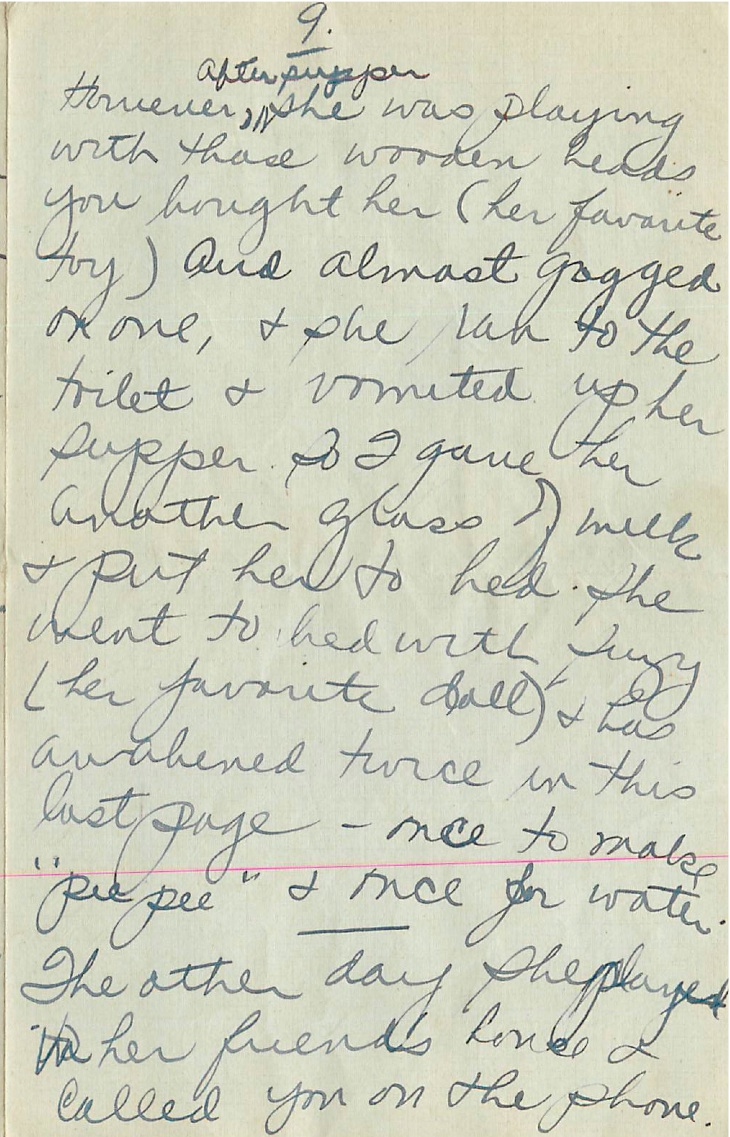 9.
After supper
However, she was playing
with those wooden beads
you bought her (her favorite
toy) And almost gagged
on one, & she ran to the
toilet & vomited up her
supper. So I gave her
another glass of milk
& put her to bed. She
went to bed with Suzy
(her favorite doll) & has
awakened twice in this
last page - once to make
"pee pee" & once for water.
The other day she played
in her friend's house &
called you on the phone.